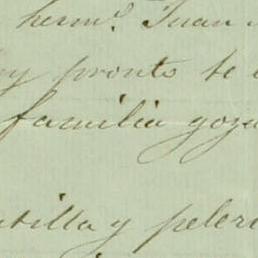 herm.º Juan
y pronto te
familia goza
tilla y peler